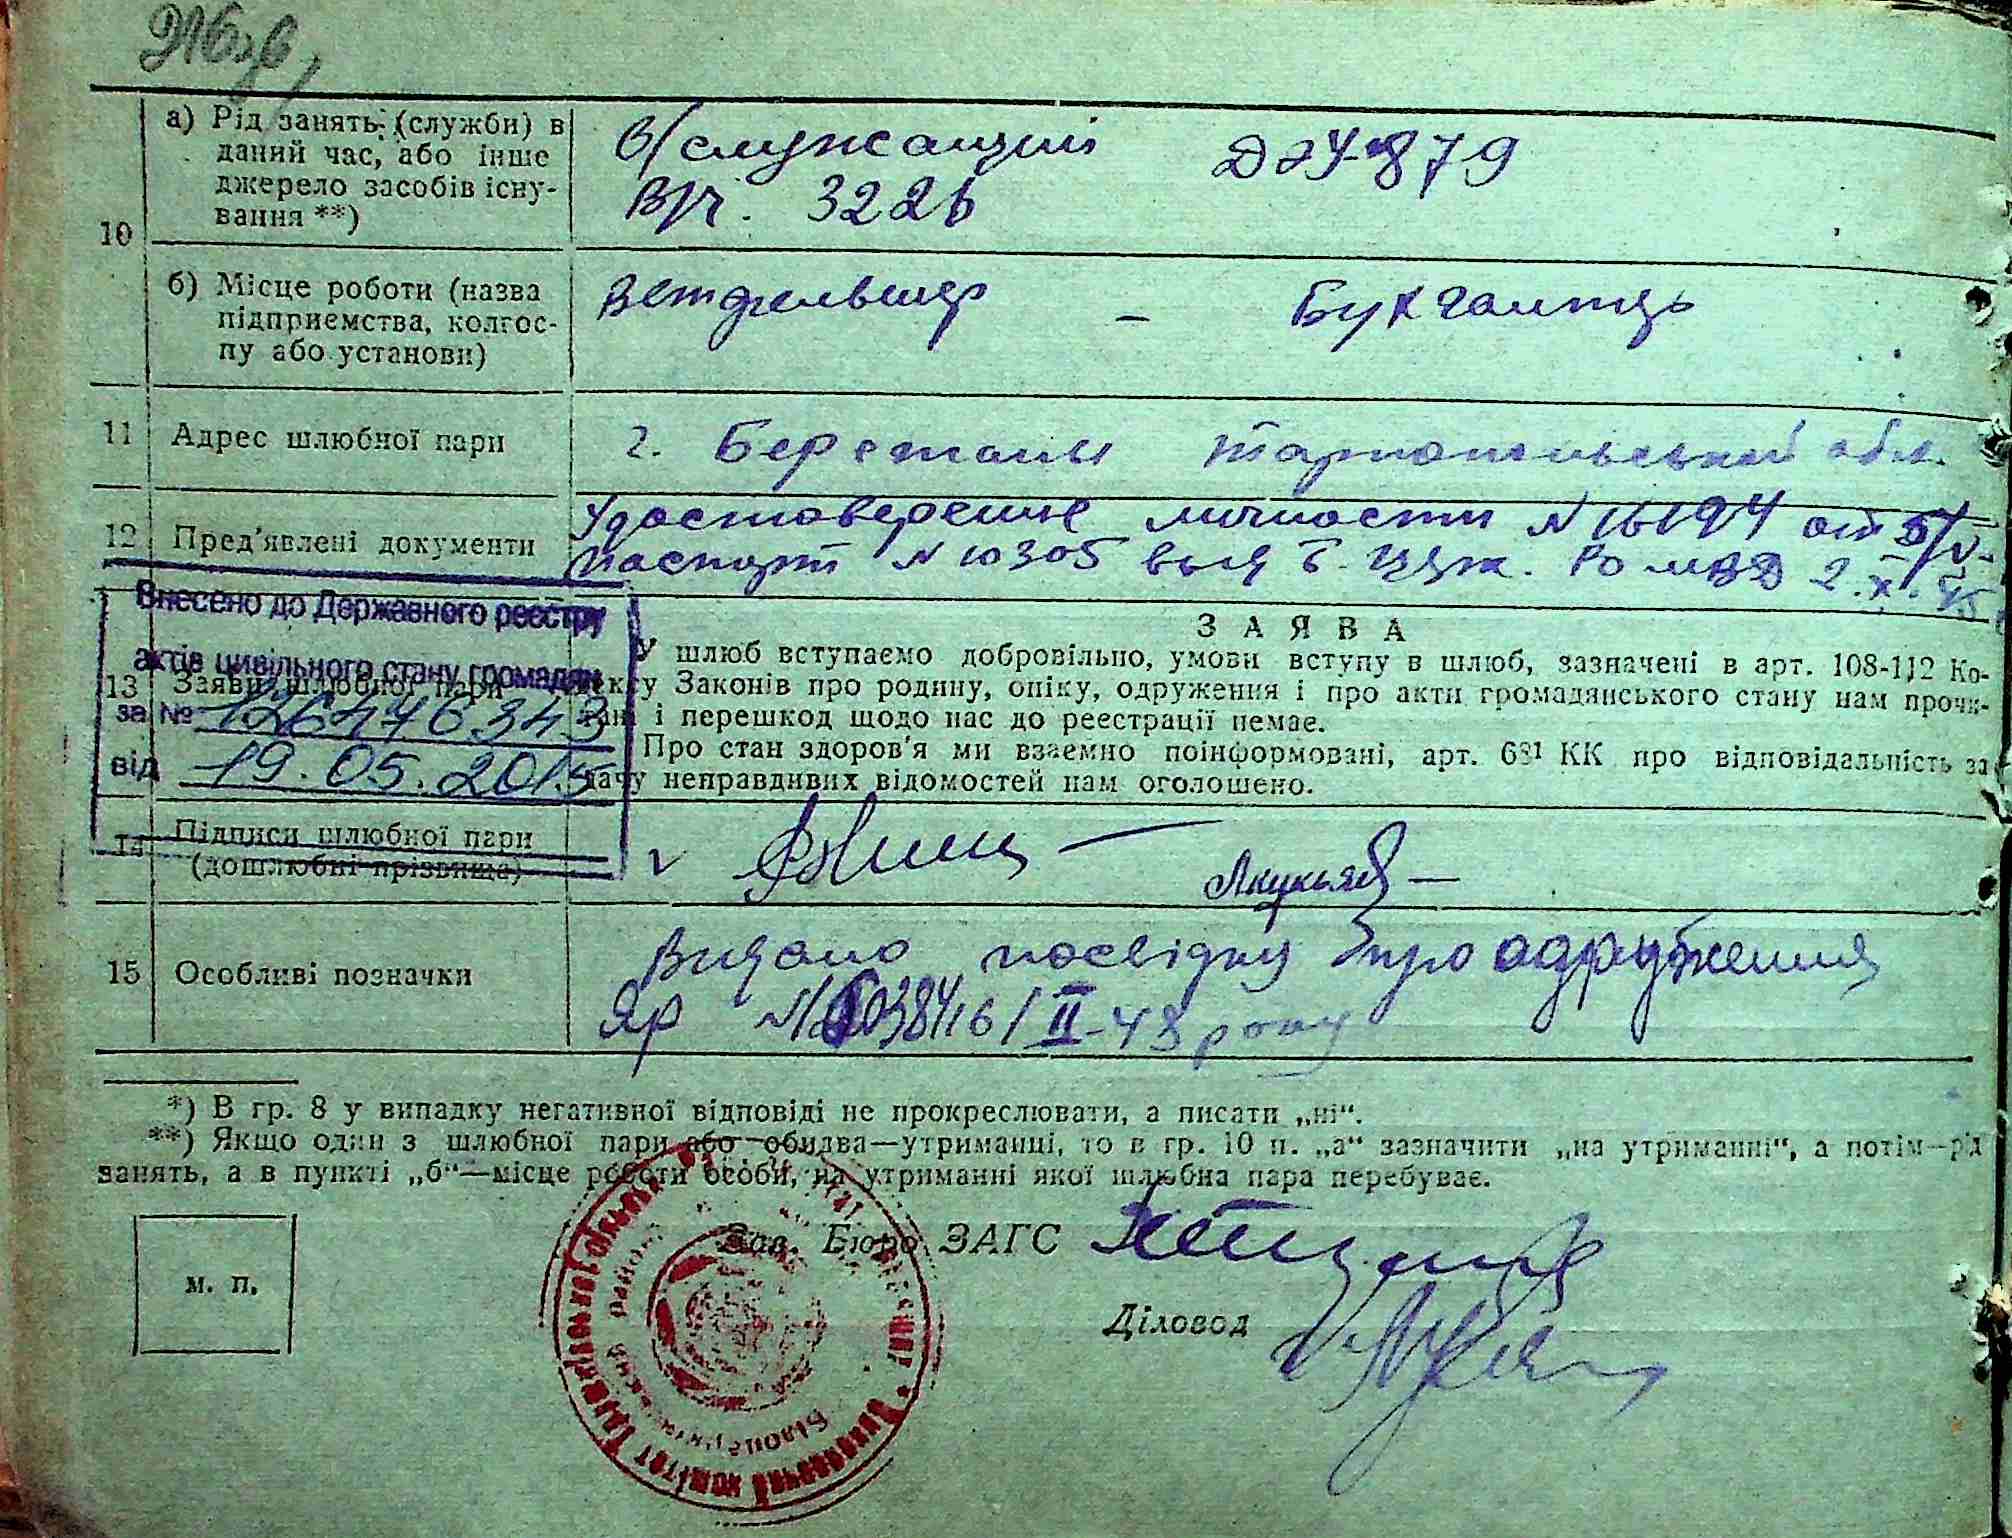 10
а) Рід занять (служби) в
даний час, або інше
джерело засобів існу-
вання **)
в/служащий
в/ч. 3226
ДОУ-879
б) Місце роботи (назва
підприємства, колгос-
пу або установи)
Ветфельшер – Бухгалтер
11 Адрес шлюбної пари
г. Бережаны Тарнопольской обл.
12 Пред'явлені документи
Удостоверение личности N 16194 от
паспорт N 10305 выд Б. РО МВД 2.X.45
Внесено до Державного реєстру
актів цивільного стану громадян
за № 126476343
від 19.05.2015
13 Заяви шлюбної пари
ЗАЯВА
У шлюб вступаємо добровільно, умови вступу в шлюб, зазначені в арт. 108-112 Ко-
дексу Законів про родину, опіку, одруження і про акти громадянського стану нам прочи-
тані і перешкод щодо нас до реєстрації немає.
Про стан здоров'я ми взаємно поінформовані, арт. 68¹ КК про відповідальність за
дачу неправдивих відомостей нам оголошено.
14 Підписи шлюбної пари
(дошлюбні прізвища)
15 Особливі позначки
Видано посвідку про одруження
ЯР N 038416 / II-48 року
*) В гр. 8 у випадку негативної відповіді не прокреслювати, а писати „ні“.
**) Якщо один з шлюбної пари або обидва—утриманці, то в гр. 10 п. „а“ зазначити „на утриманні“, а потім—рід
занять, а в пункті „б“—місце роботи особи, на утриманні якої шлюбна пара перебуває.
Зав. Бюро ЗАГС
м. п.
Діловод